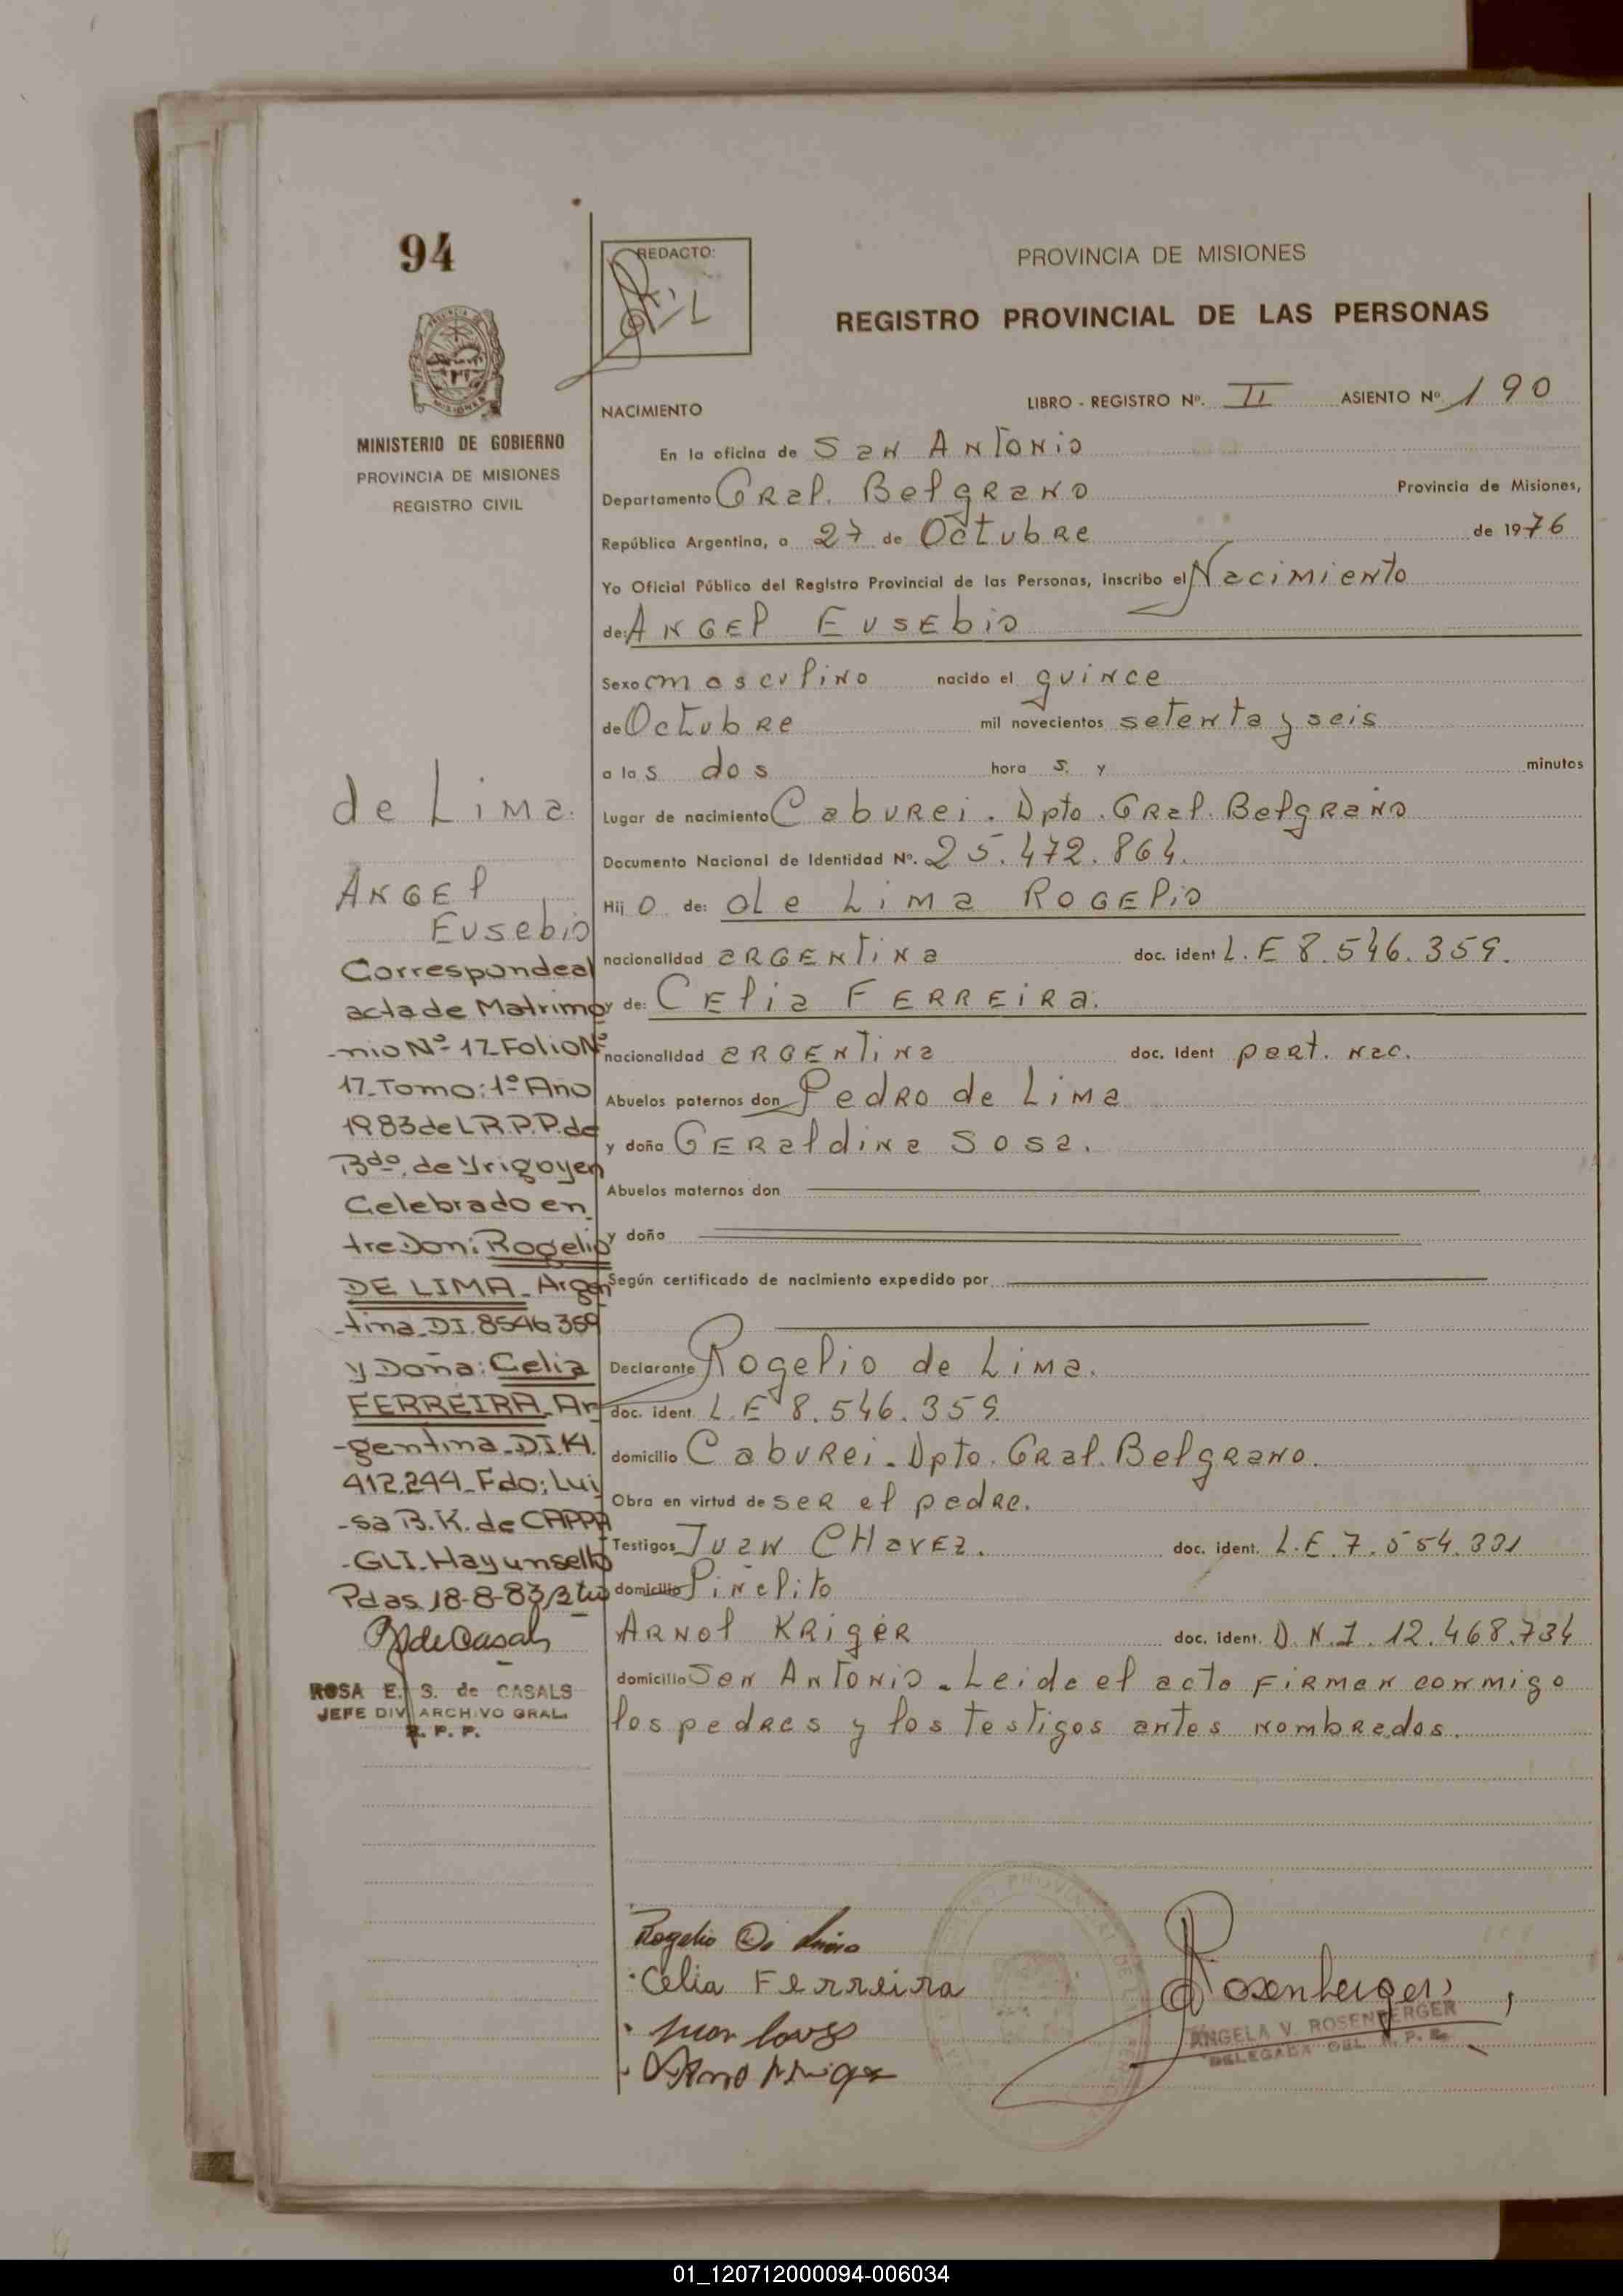 94
MINISTERIO DE GOBIERNO
PROVINCIA DE MISIONES
REGISTRO CIVIL
de Lima.
ANGEl
Eusebio
Correspondeal
acta de Matrimo
-nio Nº- 17 Folio Nº
17-Tomo: 1º Año
1983 de L R.P.P. de
Bdo. de Yrigoyen
Celebrado en
tre Don: Rogelio
DE LIMA - Argen
-tina - DI. 8546359
y Doña: Celia
FERREIRA - Ar
-gentina - D.I. 14.
412.244 - Fdo: Lui
-sa B. K. de CAPPA
-GLI. Hay un sello
Pdas 18-8-83
ROSA E. S. de CASALS
JEFE DIV ARCHIVO GRAL.
R. P. P.
REDACTO:
PROVINCIA DE MISIONES
REGISTRO PROVINCIAL DE LAS PERSONAS
NACIMIENTO
LIBRO - REGISTRO Nº. II ASIENTO Nº 190
En la oficina de San Antonio
Departamento Gral. Belgrano Provincia de Misiones,
República Argentina, a 27 de Octubre de 1976
Yo Oficial Público del Registro Provincial de las Personas, inscribo el Nacimiento
de: ANGEl EusEbio
Sexo masculino nacido el quince
de Octubre mil novecientos setenta y seis
a las dos horas. y minutos
Lugar de nacimiento Caburei. Dpto. Gral. Belgrano
Documento Nacional de Identidad Nº. 25.472.864.
Hijo de: de Lima ROGElio
nacionalidad ARGENTINA doc. ident L.E 8.546.359.
y de: CElia FERREIRA.
nacionalidad ARGENTINA doc. ident pert. nac.
Abuelos paternos don Pedro de Lima
y doña GERaldina Sosa.
Abuelos maternos don
y doña
Según certificado de nacimiento expedido por
Declarante Rogelio de Lima.
doc. ident. L.E 8.546.359
domicilio Caburei - Dpto. Gral. Belgrano.
Obra en virtud de ser el padre.
Testigos Juan CHavEz. doc. ident. L.E. 7.554.331
domicilio Piñelito
Arnol KRiger doc. ident. D.N.I. 12.468.734
domicilio San Antonio - Leida el acta firman conmigo
los padres y los testigos antes nombrados.
Celia Ferreira
Rosenberger
ANGELA V. ROSENBERGER
DELEGADA DEL R. P. P.
01_120712000094-006034